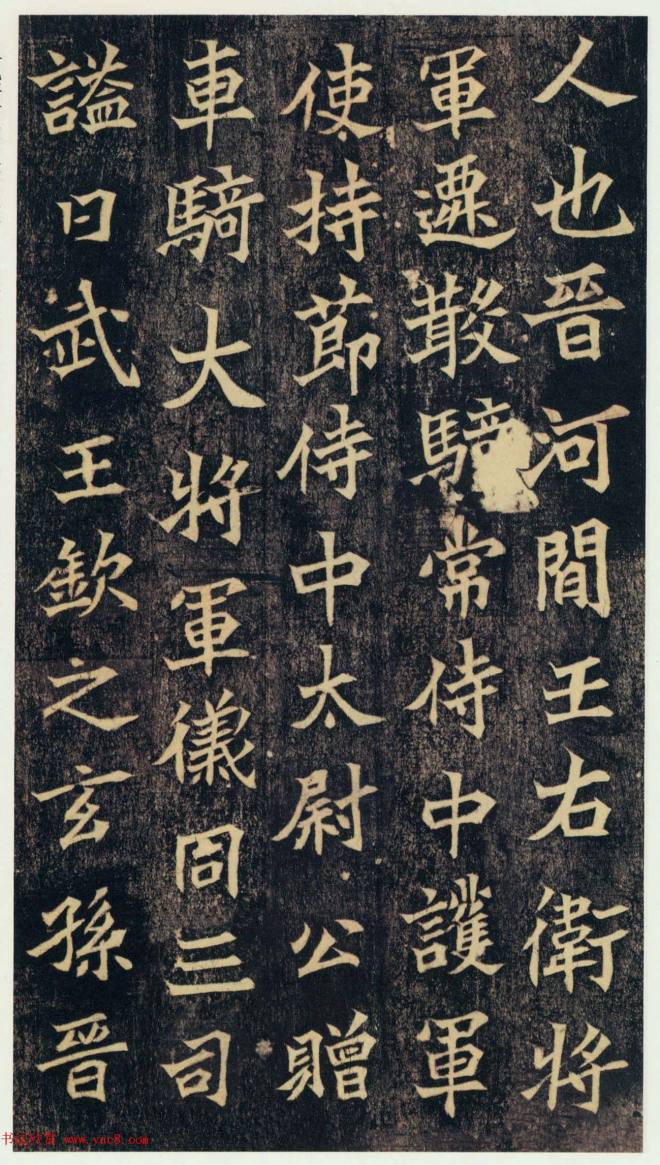 人也晉河間王右衛將
軍遷散騎常侍中護軍
使持節侍中太尉公贈
車騎大將軍儀同三司
謚曰武王欽之玄孫晉
www.yac8.com